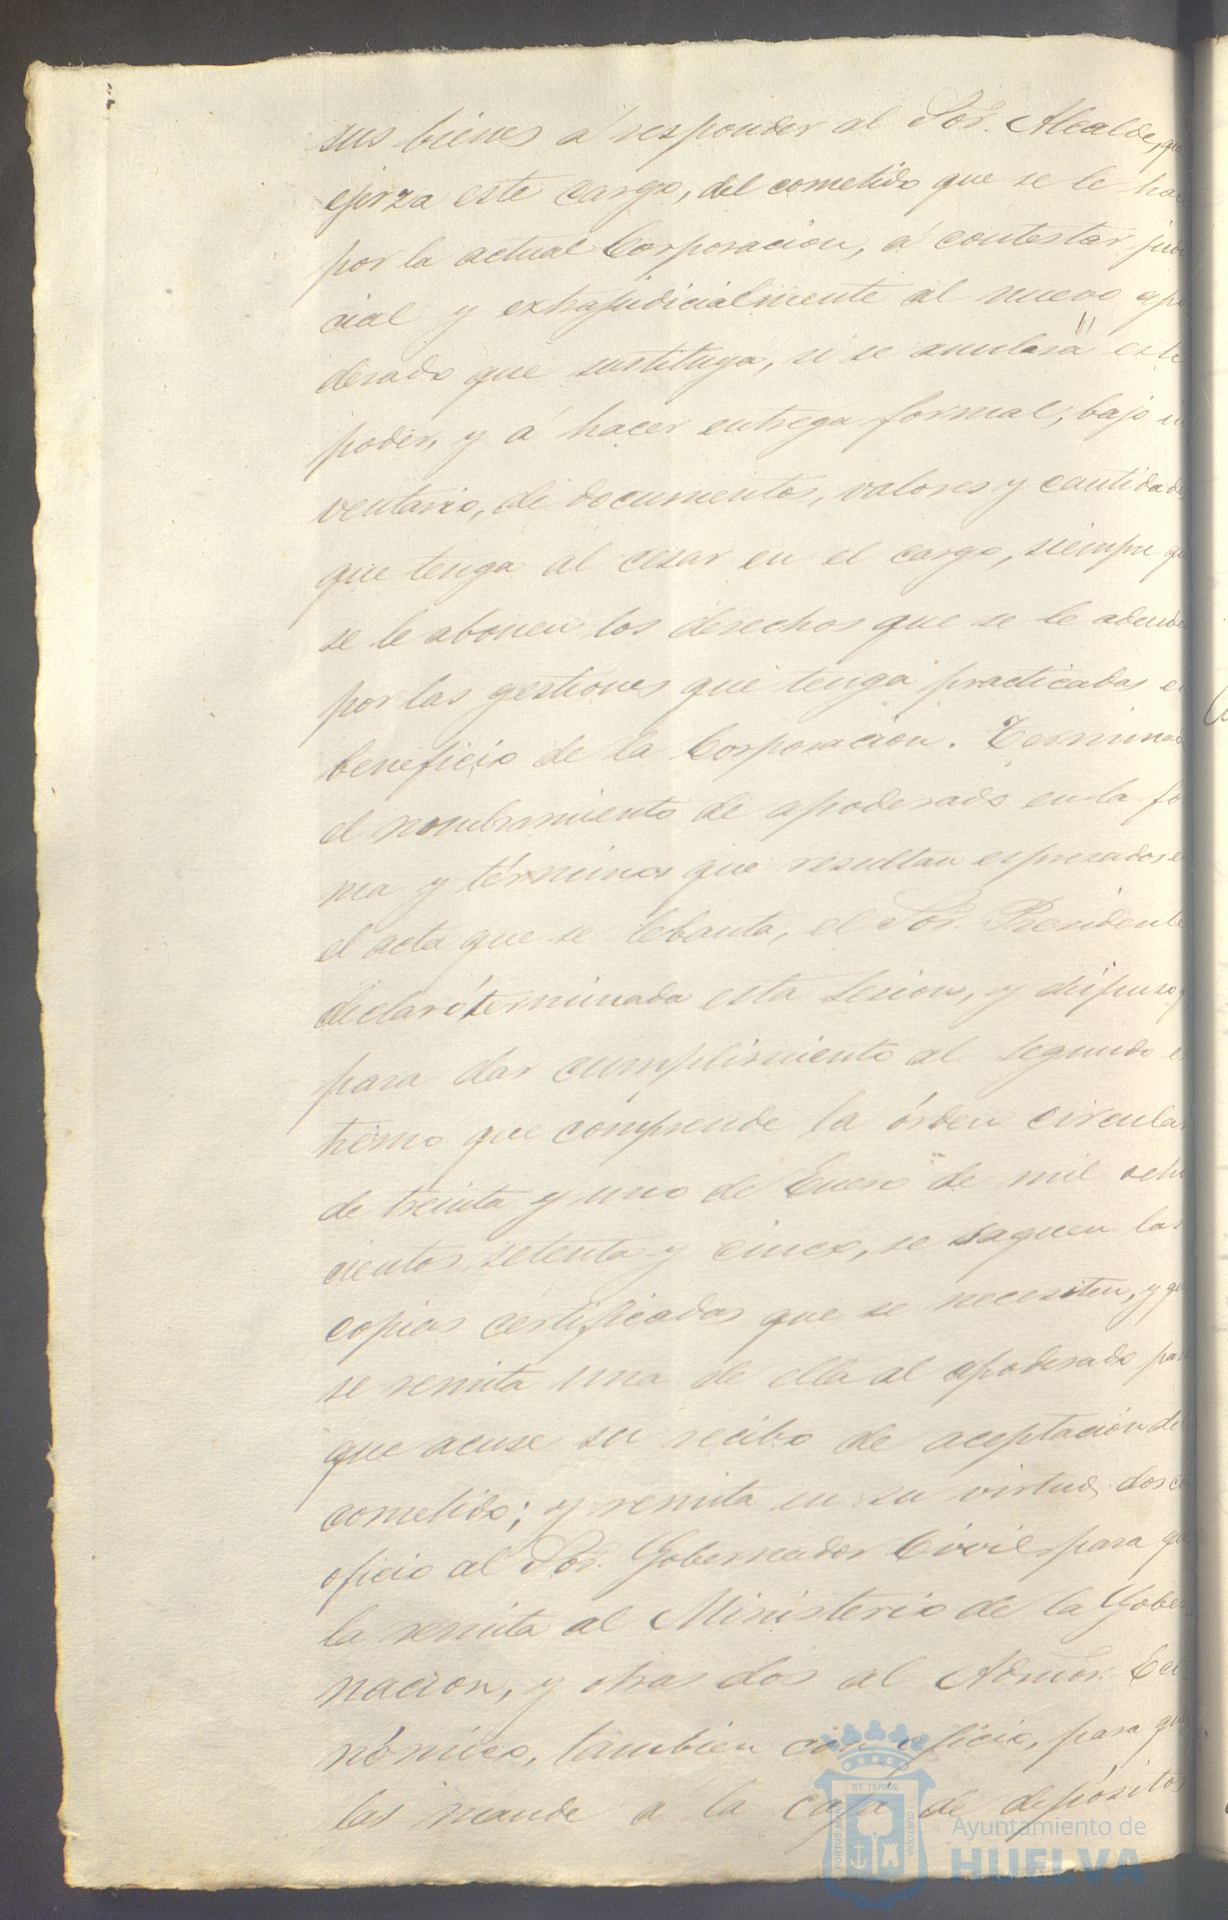 sus bienes á responder al Sor. Alcalde, que
ejerza este cargo, del cometido que se le hac
por la actual Corporacion, á contestar judi
cial y extrajudicialmente al nuevo apo
derado que sustituya, si se anulara este
poder, y á hacer entrega formal, bajo in
ventario, de documentos, valores y cantidades
que tenga al cesar en el cargo, siempre qu
se le abonen los derechos que se le adeude
por las gestiones que tenga practicadas en
beneficio de la Corporacion. Terminad
el nombramiento de apoderado en la for
ma y términos que resultan espresados en
el acta que se lebanta, el Sor. Presidente
declaró terminada esta sesion, y dispuso q
para dar cumplimiento al segundo es
tremo que comprende la órden circular
de treinta y uno de Enero de mil ocho
cientos setenta y cinco, se saquen las
copias certificadas que se necesiten, y qu
se remita una de ella al apoderado par
que acuse su recibo de aceptacion del
cometido; y remita en su virtud dos co
oficio al Sor. Gobernador Civil para qu
la remita al Ministerio de la Gober
nacion, y otras dos al Admor. Eco
nómico, tambien con oficio, para qu
las mande a la caja de depósitos
ET TERRAE
PORTUS MARIS
CUSTODIA
Ayuntamiento de
HUELVA